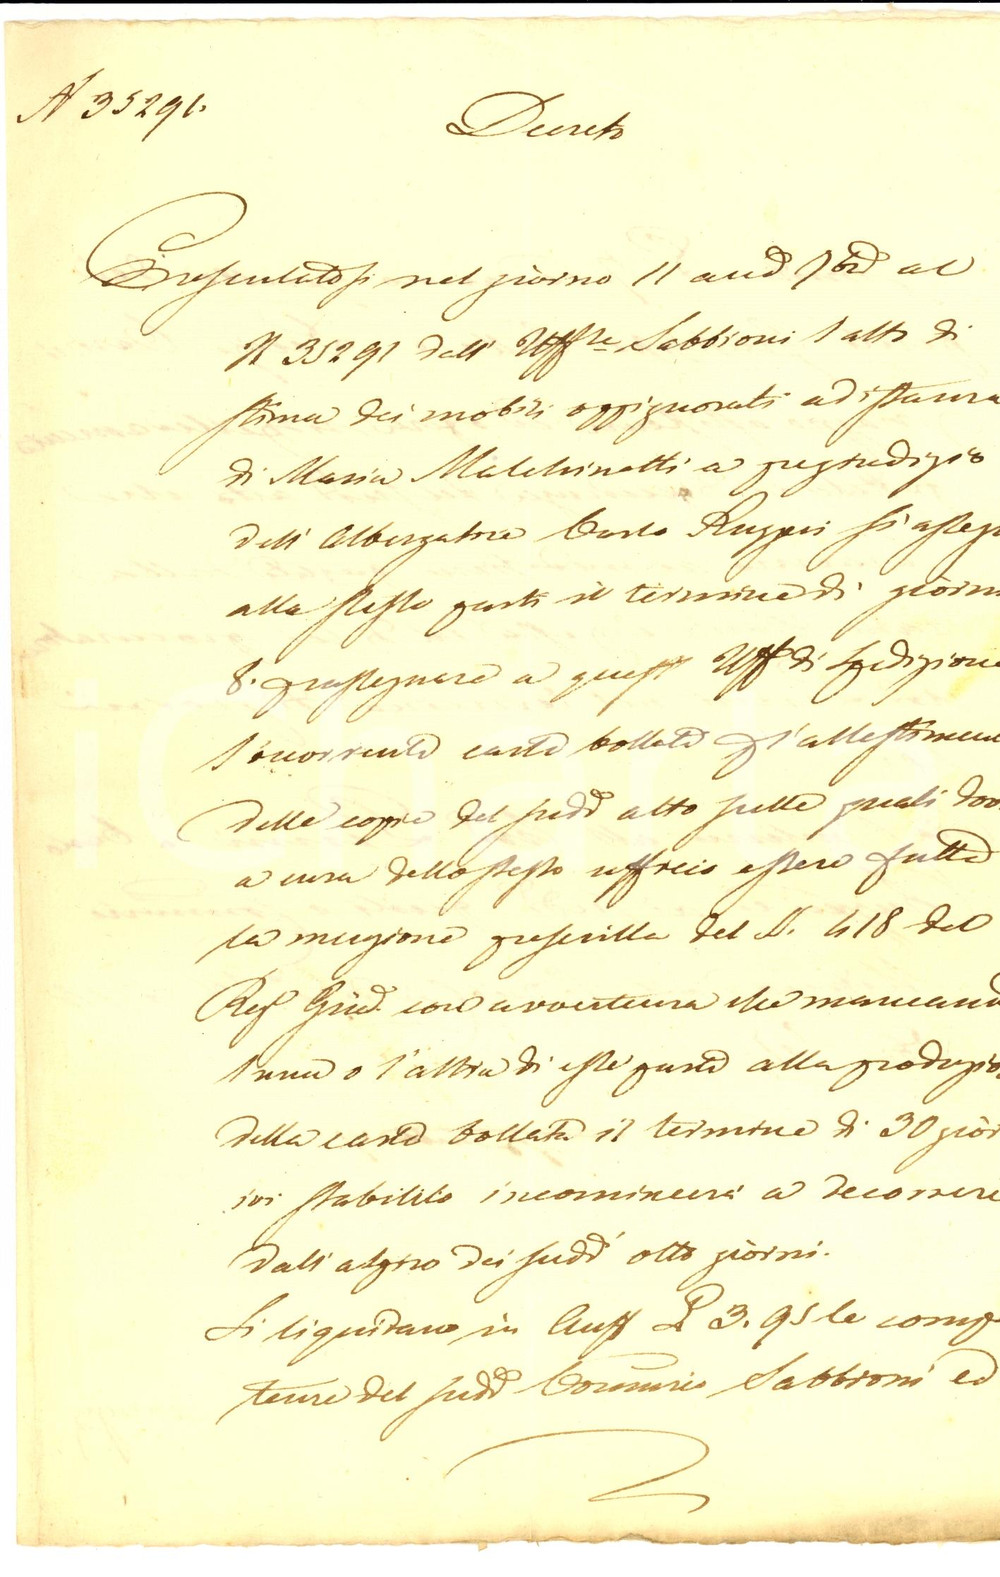 N 35291.
Decreto
Presentatosi nel giorno 11 and 7bre al
N 35291 dell' Uffle Sabbioni l'atto di
stima dei mobili oppignorati ad istanza
di Maria Malchinetti a pregiudizio
dell' Albergatore Carlo Ruggeri si assegn
alla stesse parti il termine di giorni
8. p rassegnare a quest Uff di Spedizione
l'occorrente carta bollata p l'allestimen
delle copie del sudd atto sulle quali dov
a cura dello stesso ufficio essere fatta
la menzione prescritta del §. 418 del
Reg Giud. con avvertenza che mancand
l'una o l'altra di esse parti alla produzio
della carta bollata il termine di 30 gior
ivi stabilito incomincerà a decorrere
dall' dei sudd otto giorni.
Si liquidano in Auss L 3.95 le compe
tenze del sudd Commrio Sabbioni ed